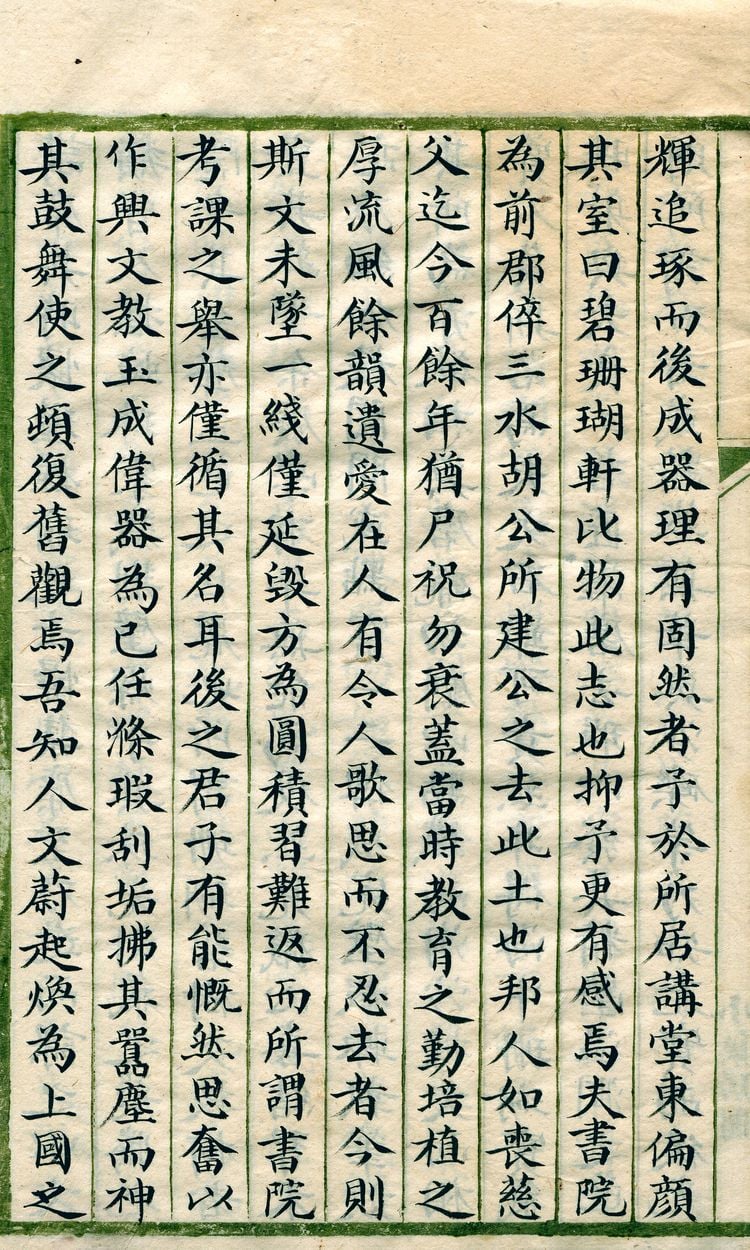 輝追琢而後成器理有固然者予於所居講堂東偏顔
其室曰碧珊瑚軒比物此志也抑予更有感焉夫書院
為前郡倅三水胡公所建公之去此土也邦人如喪慈
父迄今百餘年猶尸祝勿衰蓋當時教育之勤培植之
厚流風餘韻遺愛在人有令人歌思而不忍去者今則
斯文未墜一綫僅延毀方為圓積習難返而所謂書院
考課之舉亦僅循其名耳後之君子有能慨然思奮以
作興文教玉成偉器為己任滌瑕刮垢拂其嚣塵而神
其鼓舞使之頓復舊觀焉吾知人文蔚起煥為上國之